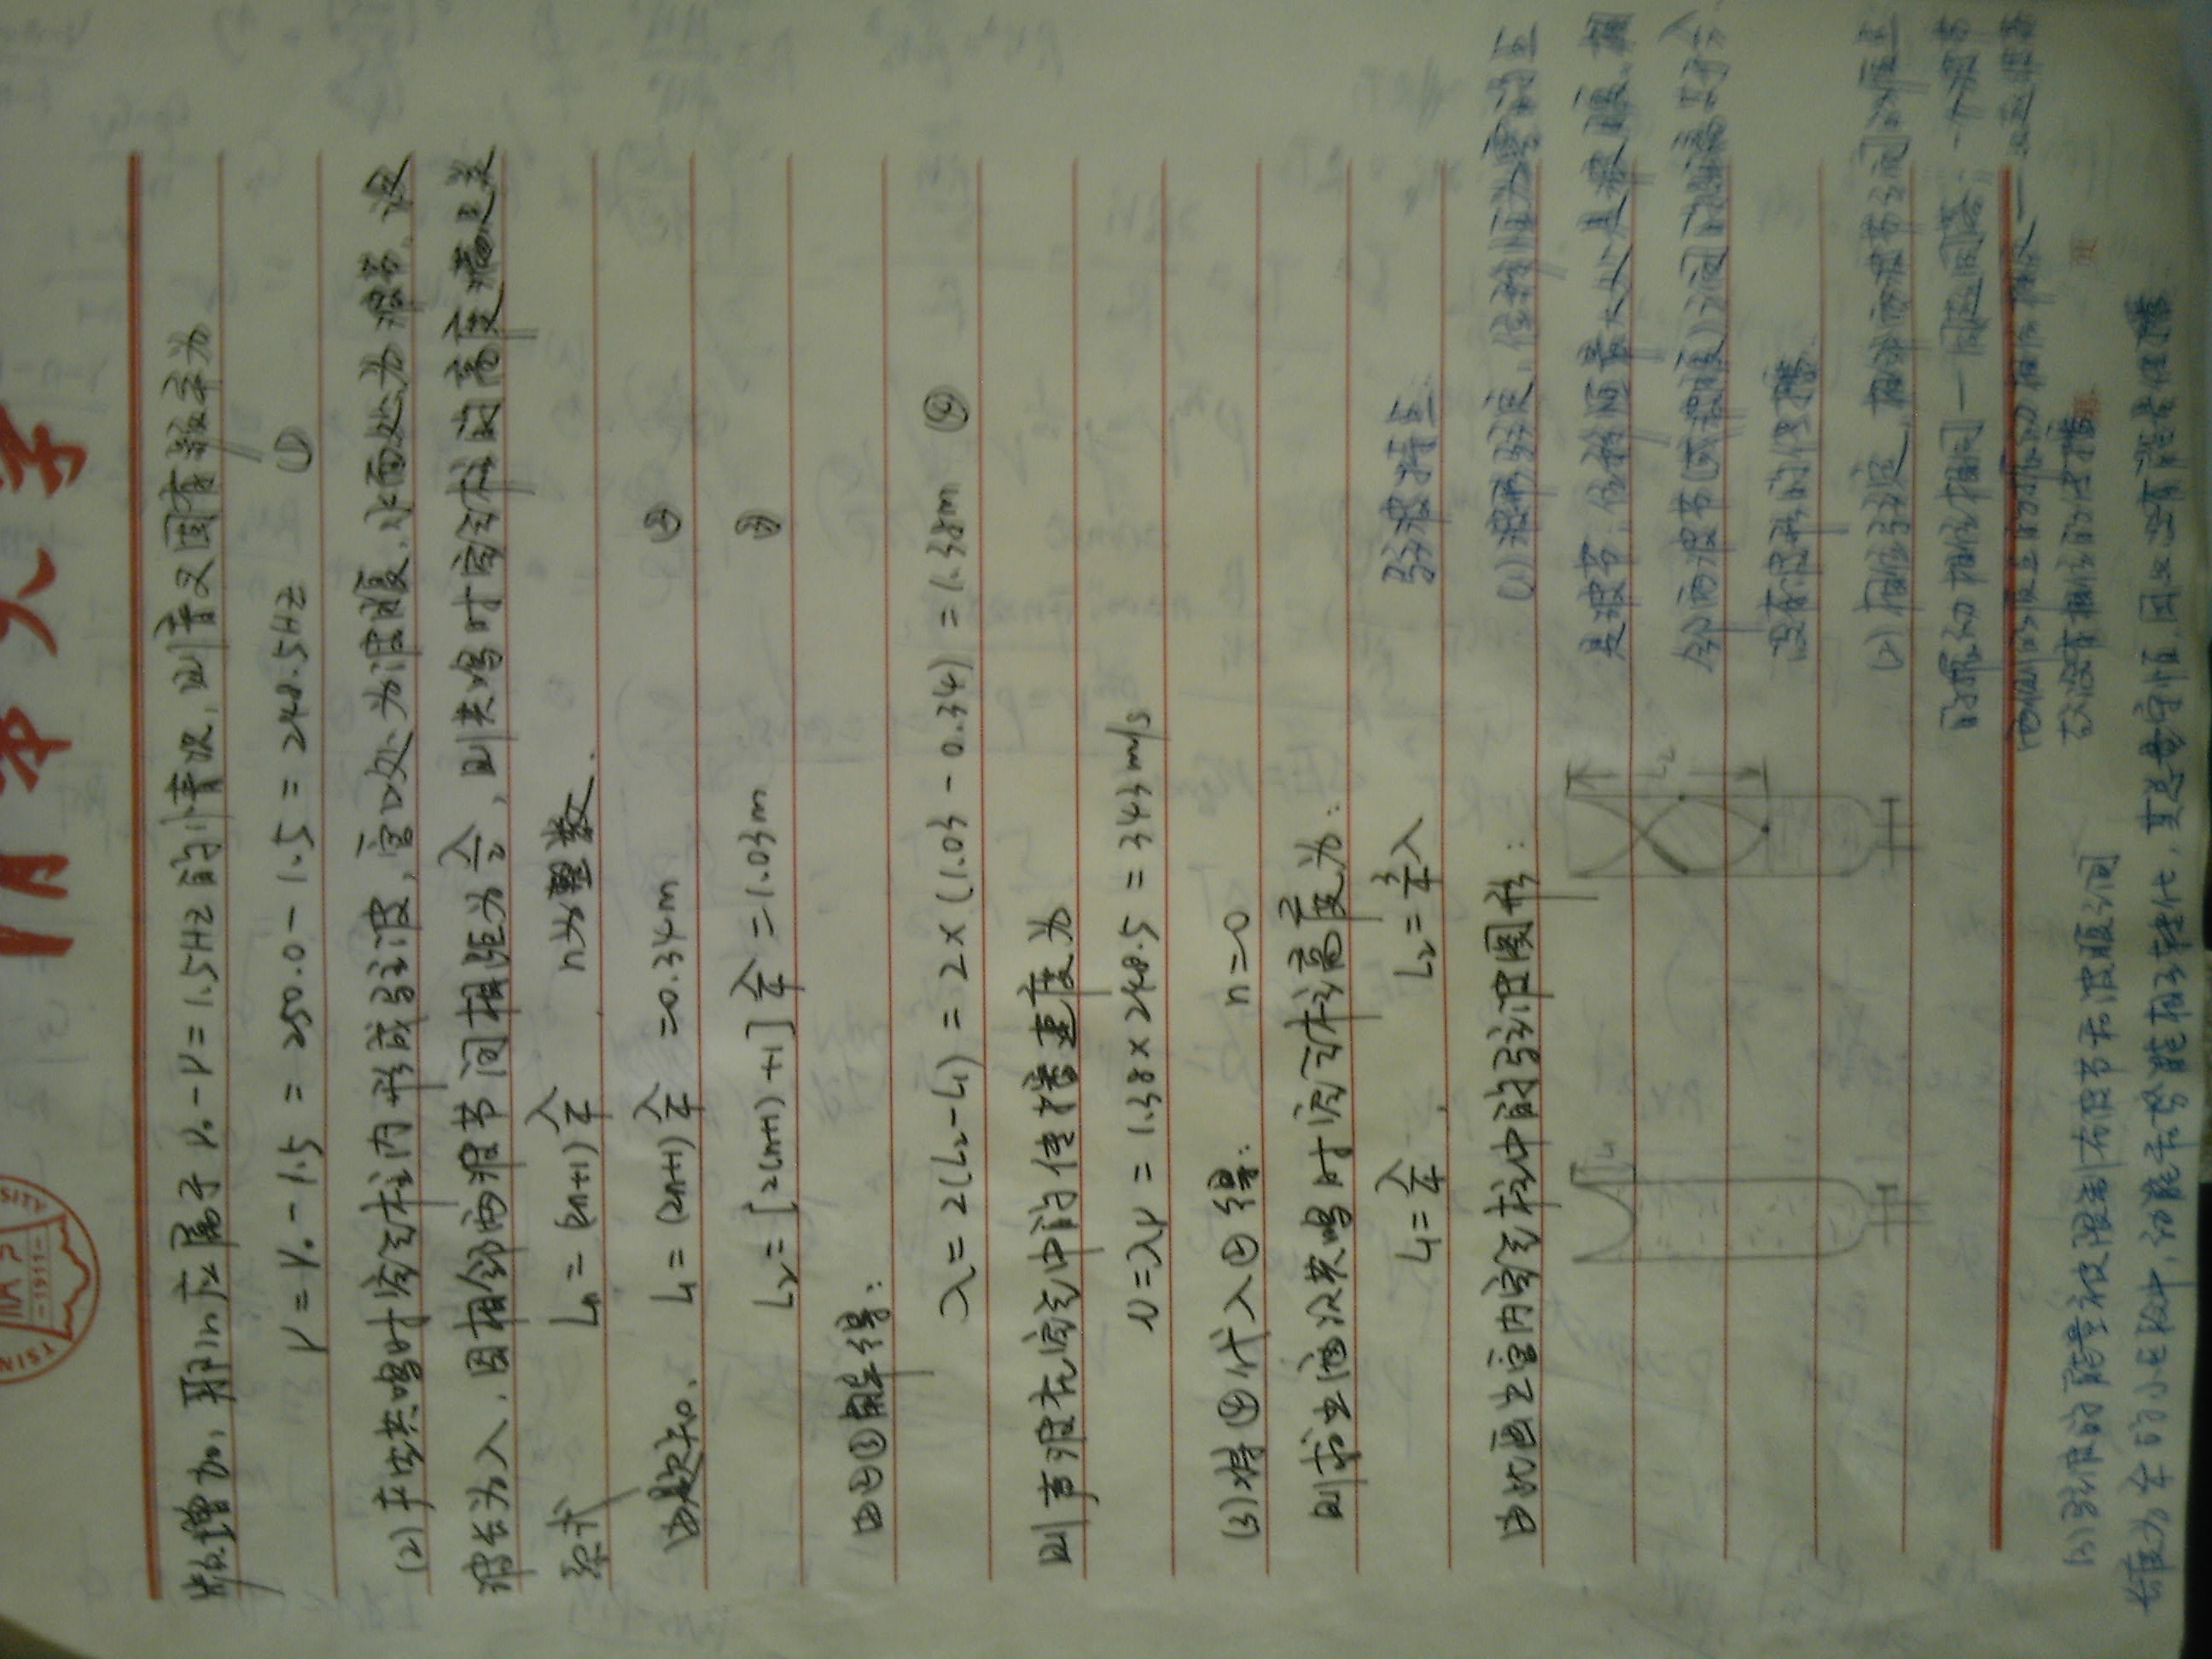 清华大学
-1911-
增加,那么应属于 ν₀-ν=1.5HZ的情况,则音叉固有频率为
ν=ν₀-1.5 = 250.0-1.5 = 248.5HZ ①
(2)产生共鸣时空气柱内形成驻波,管口处为波腹,水面处为波节,设
波长为λ,因相邻两波节间相距为λ/2,则共鸣时空气柱的高度满足关
系式 Ln = (2n+1) λ/4 , n为整数.
由题知, L1 = (2n+1) λ/4 =0.34m ②
L2 = [2(n+1)+1] λ/4 =1.03m ③
由②③解得:
λ= 2(L2-L1) = 2×(1.03-0.34) = 1.38m ④
则声波在空气中的传播速度为
υ=λν = 1.38×248.5 = 343m/s
(3)将④代入②得: n=0
则求出两次共鸣时空气柱高度为:
L1=λ/4 , L2=3/4λ
驻波特点
由此画出管内空气柱中的驻波图形:
L1
L2
(1)波形驻定,位移恒为零的点
是波节,位移恒最大处是波腹,相
邻两波节(或波腹)之间的距离等于λ/2
没有波形的传播
(2)相位驻定,相邻两波节之间的质点
的振动相位相同—同起同落;一个波节
两侧的质点的振动相位相反—
故没有相位的传播
页
(3)驻波的能量被限制在波节和波腹之间
长度为λ/4的小区段中,动能和势能相互转化,其总量守恒,因此没有能量传播